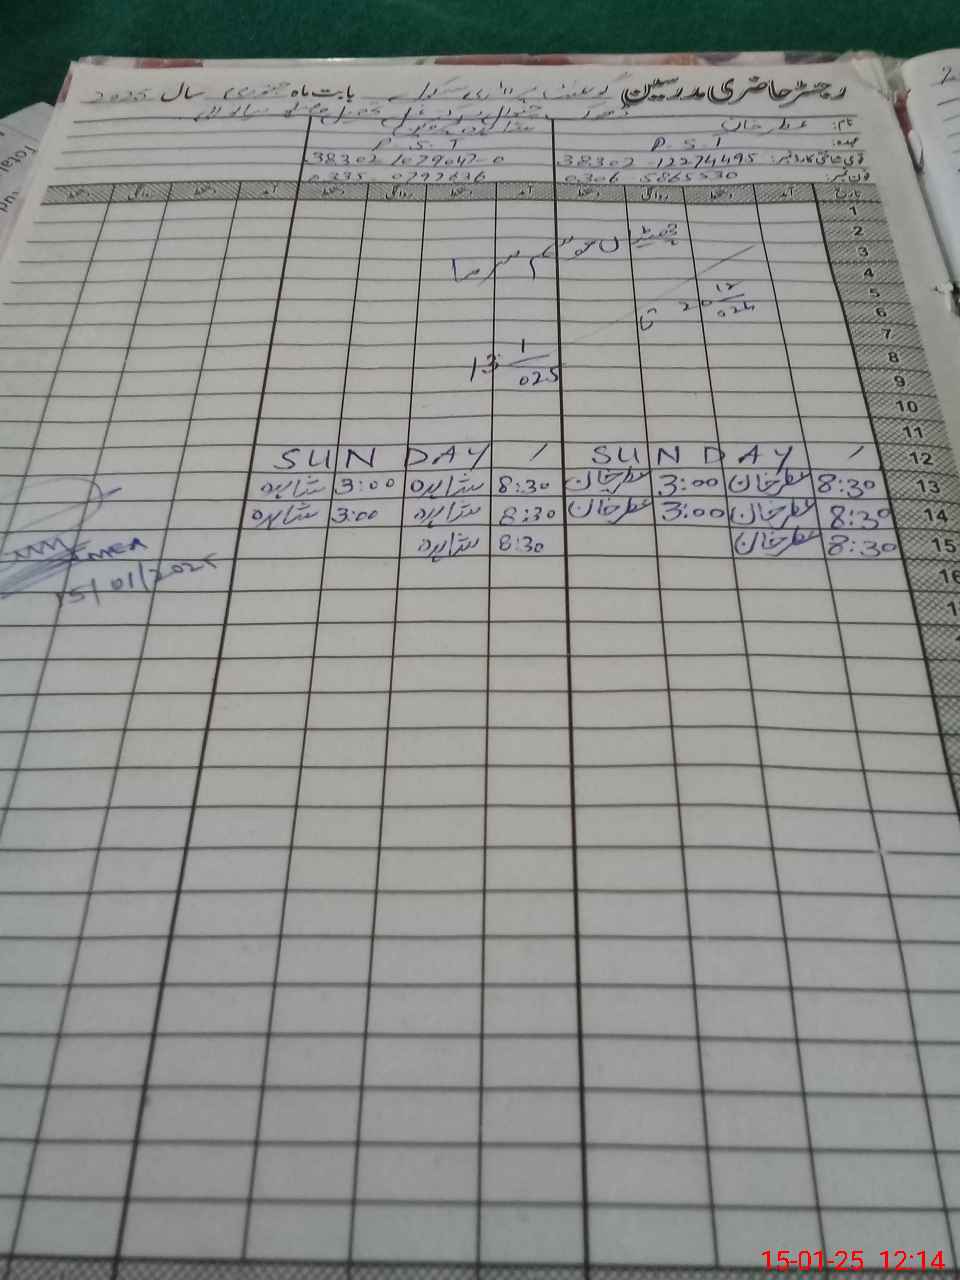 رجسٹر حاضری مدرسین گورنمنٹ پرائمری سکول بابت ماہ جنوری سال 2025
نام: عطر خان
عہدہ: P.S.T P.S.T
قومی شناختی کارڈ نمبر: 38302-12274495 38302-1079047-0
فون نمبر: 0306-5865530 0335-0797636
تاریخ آمد دستخط روانگی دستخط آمد دستخط روانگی دستخط آمد دستخط روانگی دستخط
1
2 چھٹیاں موسم سرما
3
4
5 20 12/024 تا
6
7
8 13 1/025
9
10
11
12 / SUNDAY / SUNDAY
13 8:30 عطر خان 3:00 عطر خان 8:30 شاہدہ 3:00 شاہدہ
14 8:30 عطر خان 3:00 عطر خان 8:30 شاہدہ 3:00 شاہدہ
15 8:30 عطر خان 8:30 شاہدہ
MEA
15/01/2025
16
Total
15-01-25 12:14